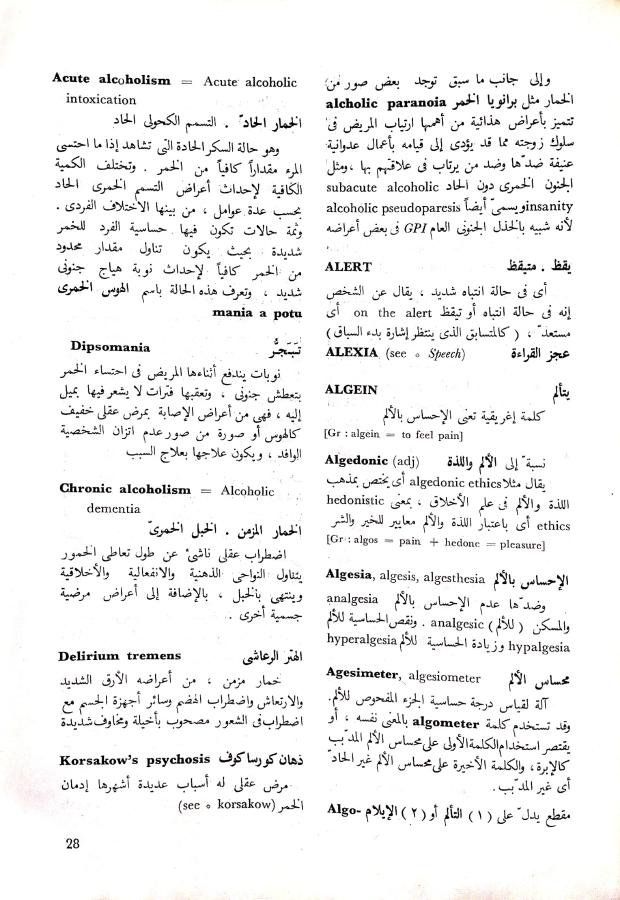 Acute alcoholism = Acute alcoholic
intoxication
الخمار الحادّ . التسمم الكحولى الحاد
وهو حالة السكر الحادة التى تشاهد إذا ما احتسى
المرء مقداراً كافياً من الخمر . وتختلف الكمية
الكافية لإحداث أعراض التسمم الخمرى الحاد
بحسب عدة عوامل ، من بينها الاختلاف الفردى .
وثمة حالات تكون فيها حساسية الفرد للخمر
شديدة بحيث يكون تناول مقدار محدود
من الخمر كافياً لإحداث نوبة هياج جنونى
شديد ، وتعرف هذه الحالة باسم الهوس الخمرى
mania a potu
Dipsomania
نوبات يندفع أثناءها المريض فى احتساء الخمر
بتعطش جنونى ، وتعقبها فترات لا يشعر فيها بميل
إليه ، فهى من أعراض الإصابة بمرض عقلى خفيف
كالهوس أو صورة من صور عدم اتزان الشخصية
الوافد ، ويكون علاجها بعلاج السبب
Chronic alcoholism = Alcoholic
dementia
الخمار المزمن . الخبل الخمرىّ
اضطراب عقلى ناشئ عن طول تعاطى الخمور
يتناول النواحى الذهنية والانفعالية والأخلاقية
وينتهى بالخبل ، بالإضافة إلى أعراض مرضية
جسمية أخرى .
Delirium tremens الهتر الرعاشى
خمار مزمن ، من أعراضه الأرق الشديد
والارتعاش واضطراب الهضم وسائر أجهزة الجسم مع
اضطراب فى الشعور مصحوب بأخيلة ومخاوف شديدة
Korsakow's psychosis ذهان كورساكوف
مرض عقلى له أسباب عديدة أشهرها إدمان
الخمر (see ∘ korsakow)
وإلى جانب ما سبق توجد بعض صور من
الخمار مثل برانويا الخمر alcholic paranoia
تتميز بأعراض هذائية من أهمها ارتياب المريض فى
سلوك زوجته مما قد يؤدى إلى قيامه بأعمال عدوانية
عنيفة ضدّها وضد من يرتاب فى علاقتهم بها ، ومثل
الجنون الخمرى دون الحاد subacute alcoholic
insanity ويسمىّ أيضاً alcoholic pseudoparesis
لأنه شبيه بالخذل الجنونى العام GPI فى بعض أعراضه .
ALERT يقظ . متيقظ
أى فى حالة انتباه شديد ، يقال عن الشخص
إنه فى حالة انتباه أو تيقظ on the alert أى
مستعدّ ، ( كالمتسابق الذى ينتظر إشارة بدء السباق )
ALEXIA (see ∘ Speech) عجز القراءة
ALGEIN يتألم
كلمة إغريقية تعنى الإحساس بالألم
[Gr : algein = to feel pain]
Algedonic (adj) نسبة إلى الألم واللذة
يقال مثلا algedonic ethics أى يختص بمذهب
اللذة والألم فى علم الأخلاق ، بمعنى hedonistic
ethics أى باعتبار اللذة والألم معايير للخير والشر
[Gr : algos = pain + hedone = pleasure]
Algesia, algesis, algesthesia الإحساس بالألم
وضدّها عدم الإحساس بالألم analgesia
والمسكن ( للألم ) analgesic . ونقص الحساسية للألم
hypalgesia وزيادة الحساسية للألم hyperalgesia
Agesimeter, algesiometer محساس الألم
آلة لقياس درجة حساسية الجزء المفحوص للألم.
وقد تستخدم كلمة algometer بالمعنى نفسه ، أو
يقتصر استخدام الكلمة الأولى على محساس الألم المدبّب
كالإبرة، والكلمة الأخيرة على محساس الألم غير الحادّ
أى غير المدبّب .
Algo- مقطع يدلّ على ( ١ ) التألم أو ( ٢ ) الإيلام
28